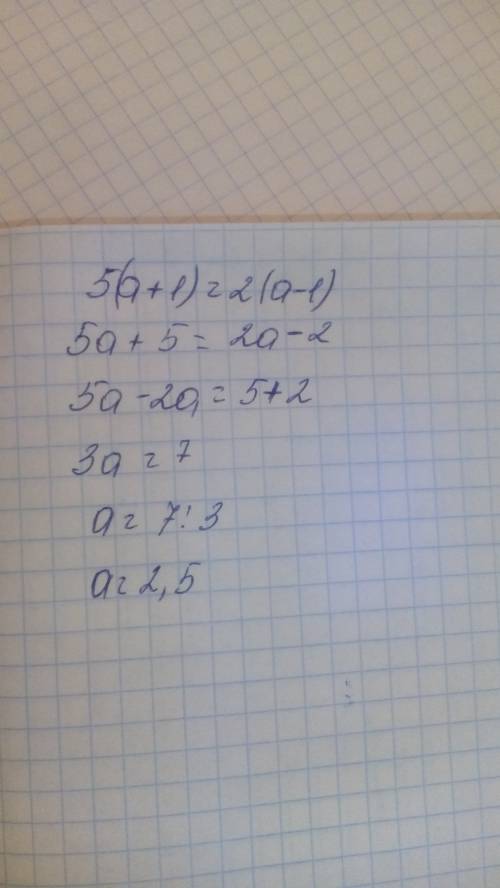 5(a+1)=2(a-1)
5a+5=2a-2
5a-2a=5+2
3a=7
a=7:3
a=2,5